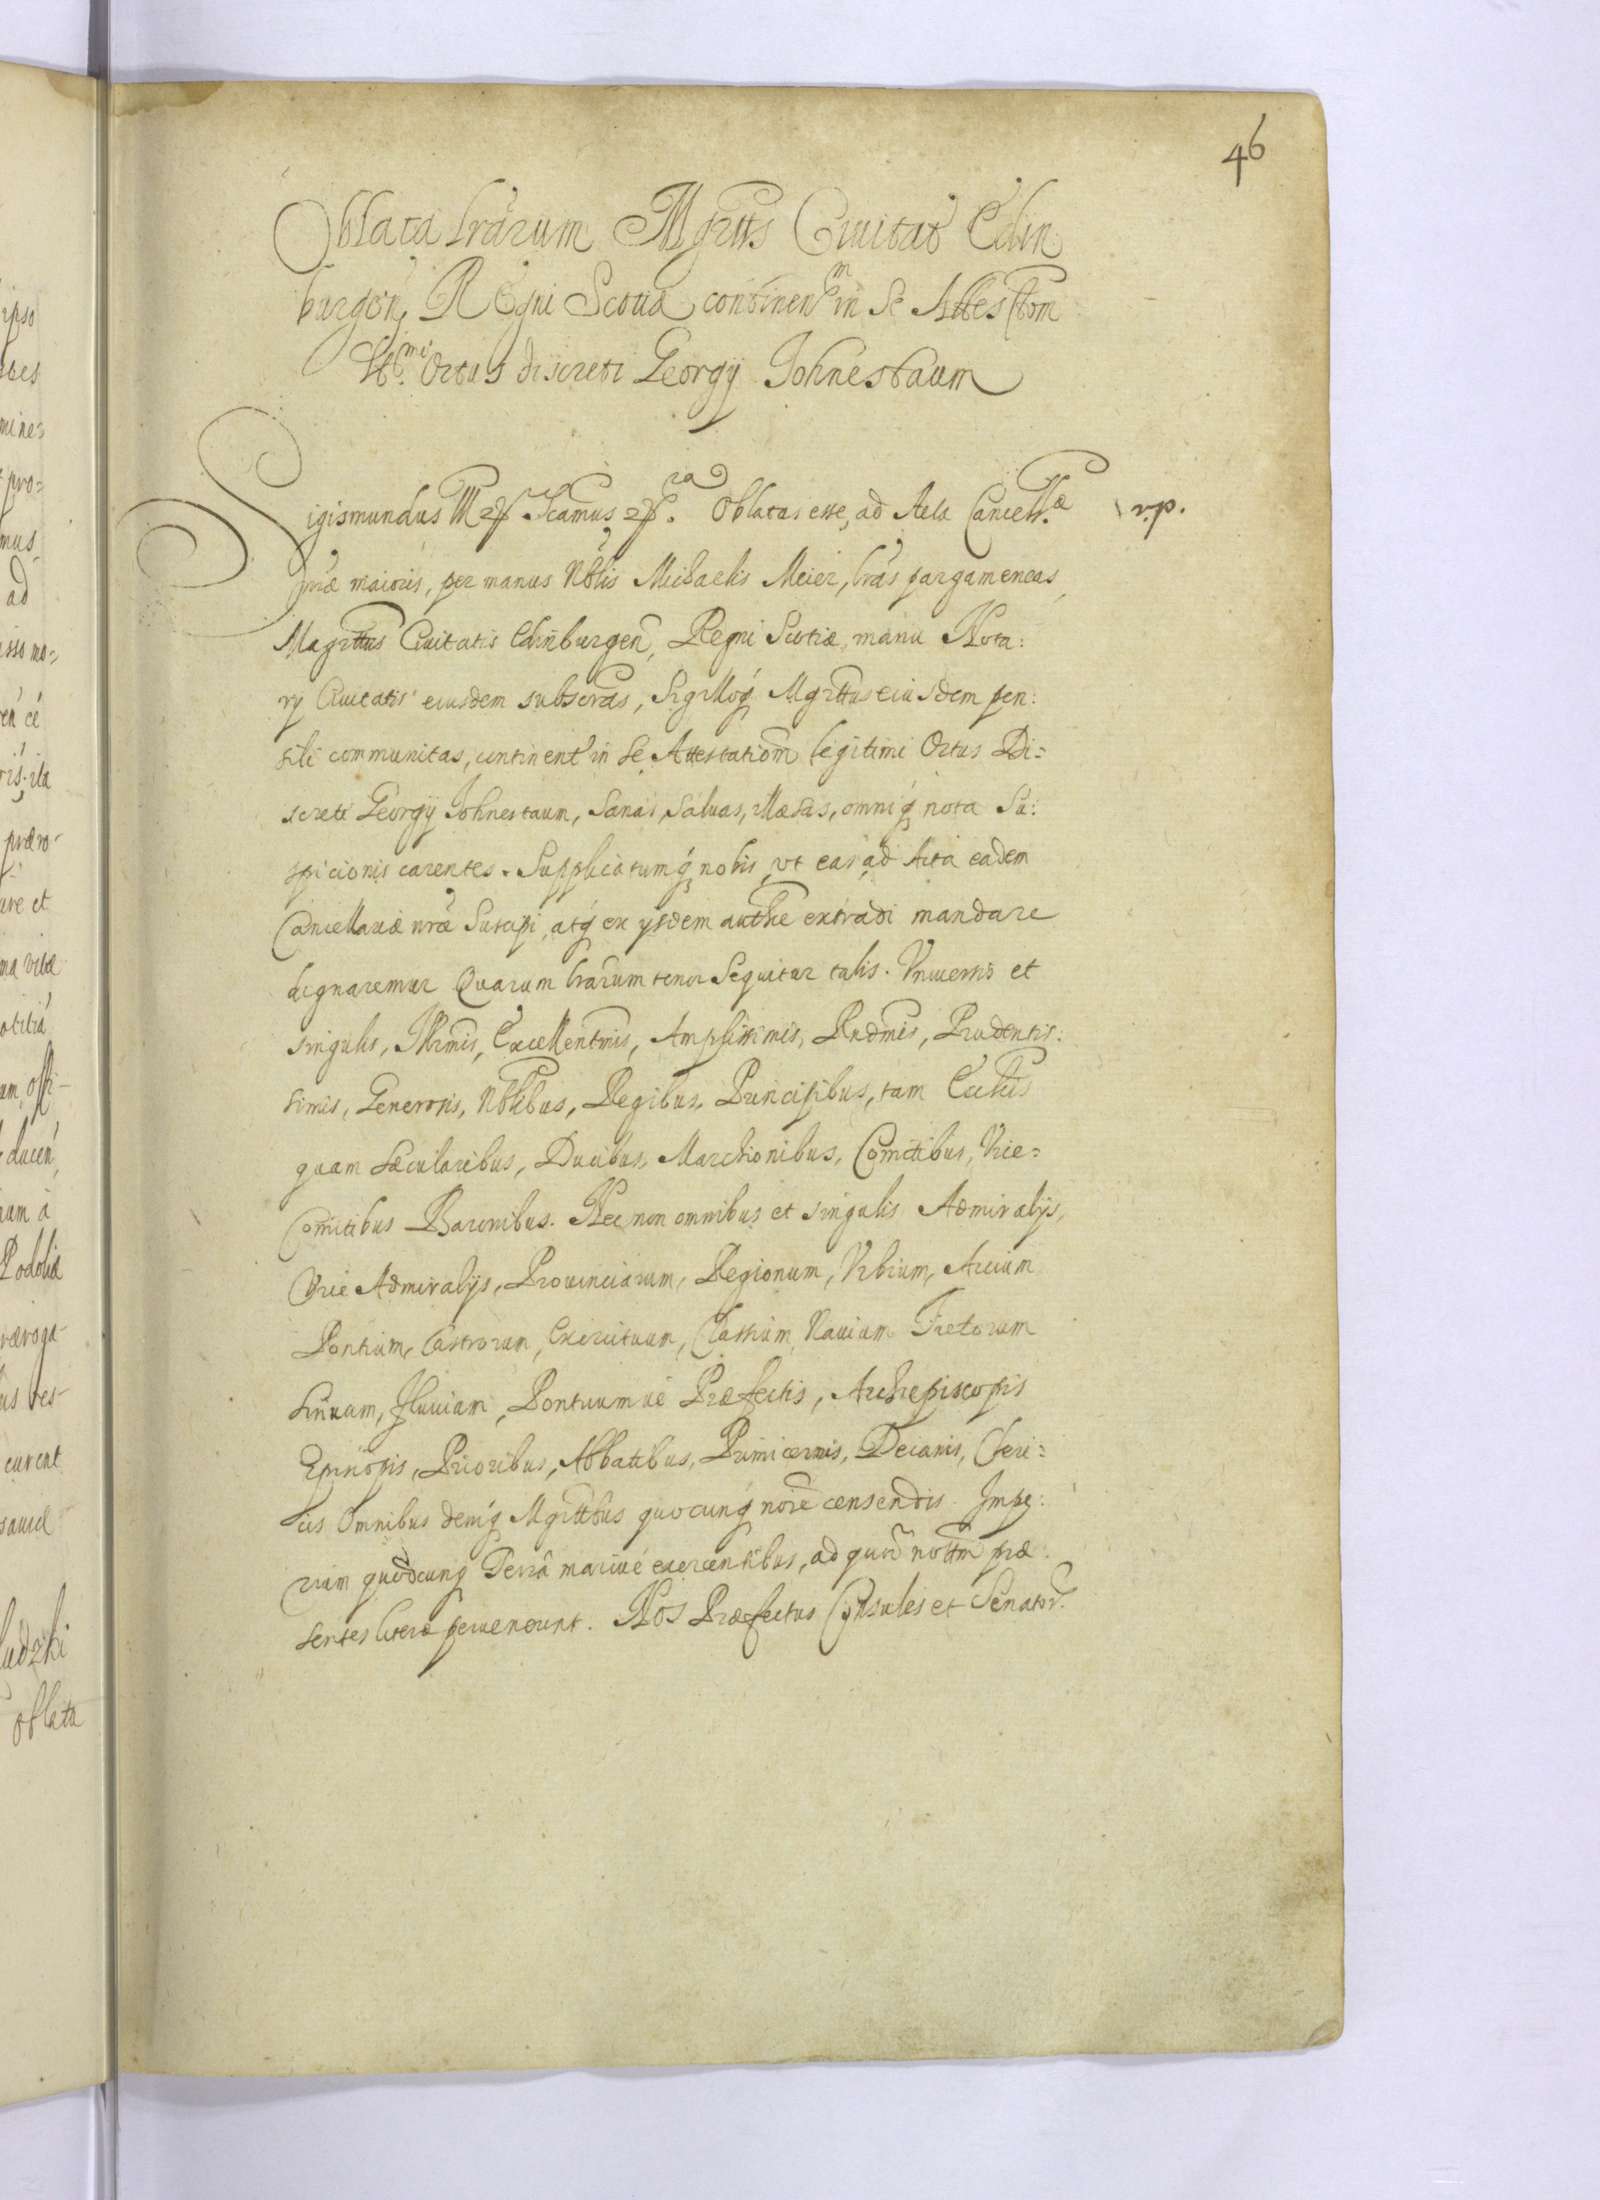 46
Oblata lrarum Mgrtts Civitat Edin
burgen Regni Scotia continen in se Attestom
ltmi Ortus discreti Georgij Johnestaum
Sigismundus III Scamus Oblatas esse, ad Acta Cancellae v.p.
nrae maioris, per manus Nblis Michaelis Meier, lras pargameneas,
Magrttus Civitatis Edinburgen, Regni Scotiæ, manu Nota:
rij Civitatis eiusdem subscras, Sigilloq Mgrttus eiusdem pen:
sili communitas, continent in se Attestationm legitimi Ortus Di=
screti Georgij Johnestaum, Sanas, Salvas, illæsas, omniq nota Su:
spicionis carentes. Supplicatumq nobis, vt eas ad Acta eadem
Cancellariæ nræ Suscipi, atq ex ijsdem authe extradi mandare
dignaremur Quarum lrarum tenor Sequitur talis. Vniuersis et
singulis, Illrmis, Excellentmis, Amplissimis, Rndmis, Prudentis:
simis, Generosis, Nblibus, Regibus, Principibus, tam Ecclticis
quam sæcularibus, Ducibus, Marchionibus, Comitibus, Vice=
Comitibus Baronibus. Nec non omnibus et singulis Admiralijs,
Vice Admiralijs, Prouinciarum, Regionum, Vrbium, Arcium
Pontium, Castrorum, Exercituum, Classium, Nauium Fretorum
Sinuum, Fluuiam, Pontuumue Præfectis, Archiepiscopis
Episcopis, Prioribus, Abbatibus, Primicerijs, Decanis, Cleri=
cis Omnibus deniq Mgrttbus quocunq nore censendis. Impe:
rium quodcunq Terrâ mariué exercentibus, ad quor nottm præ:
sentes literæ peruenerunt. Nos Præfectus Consules et Senator